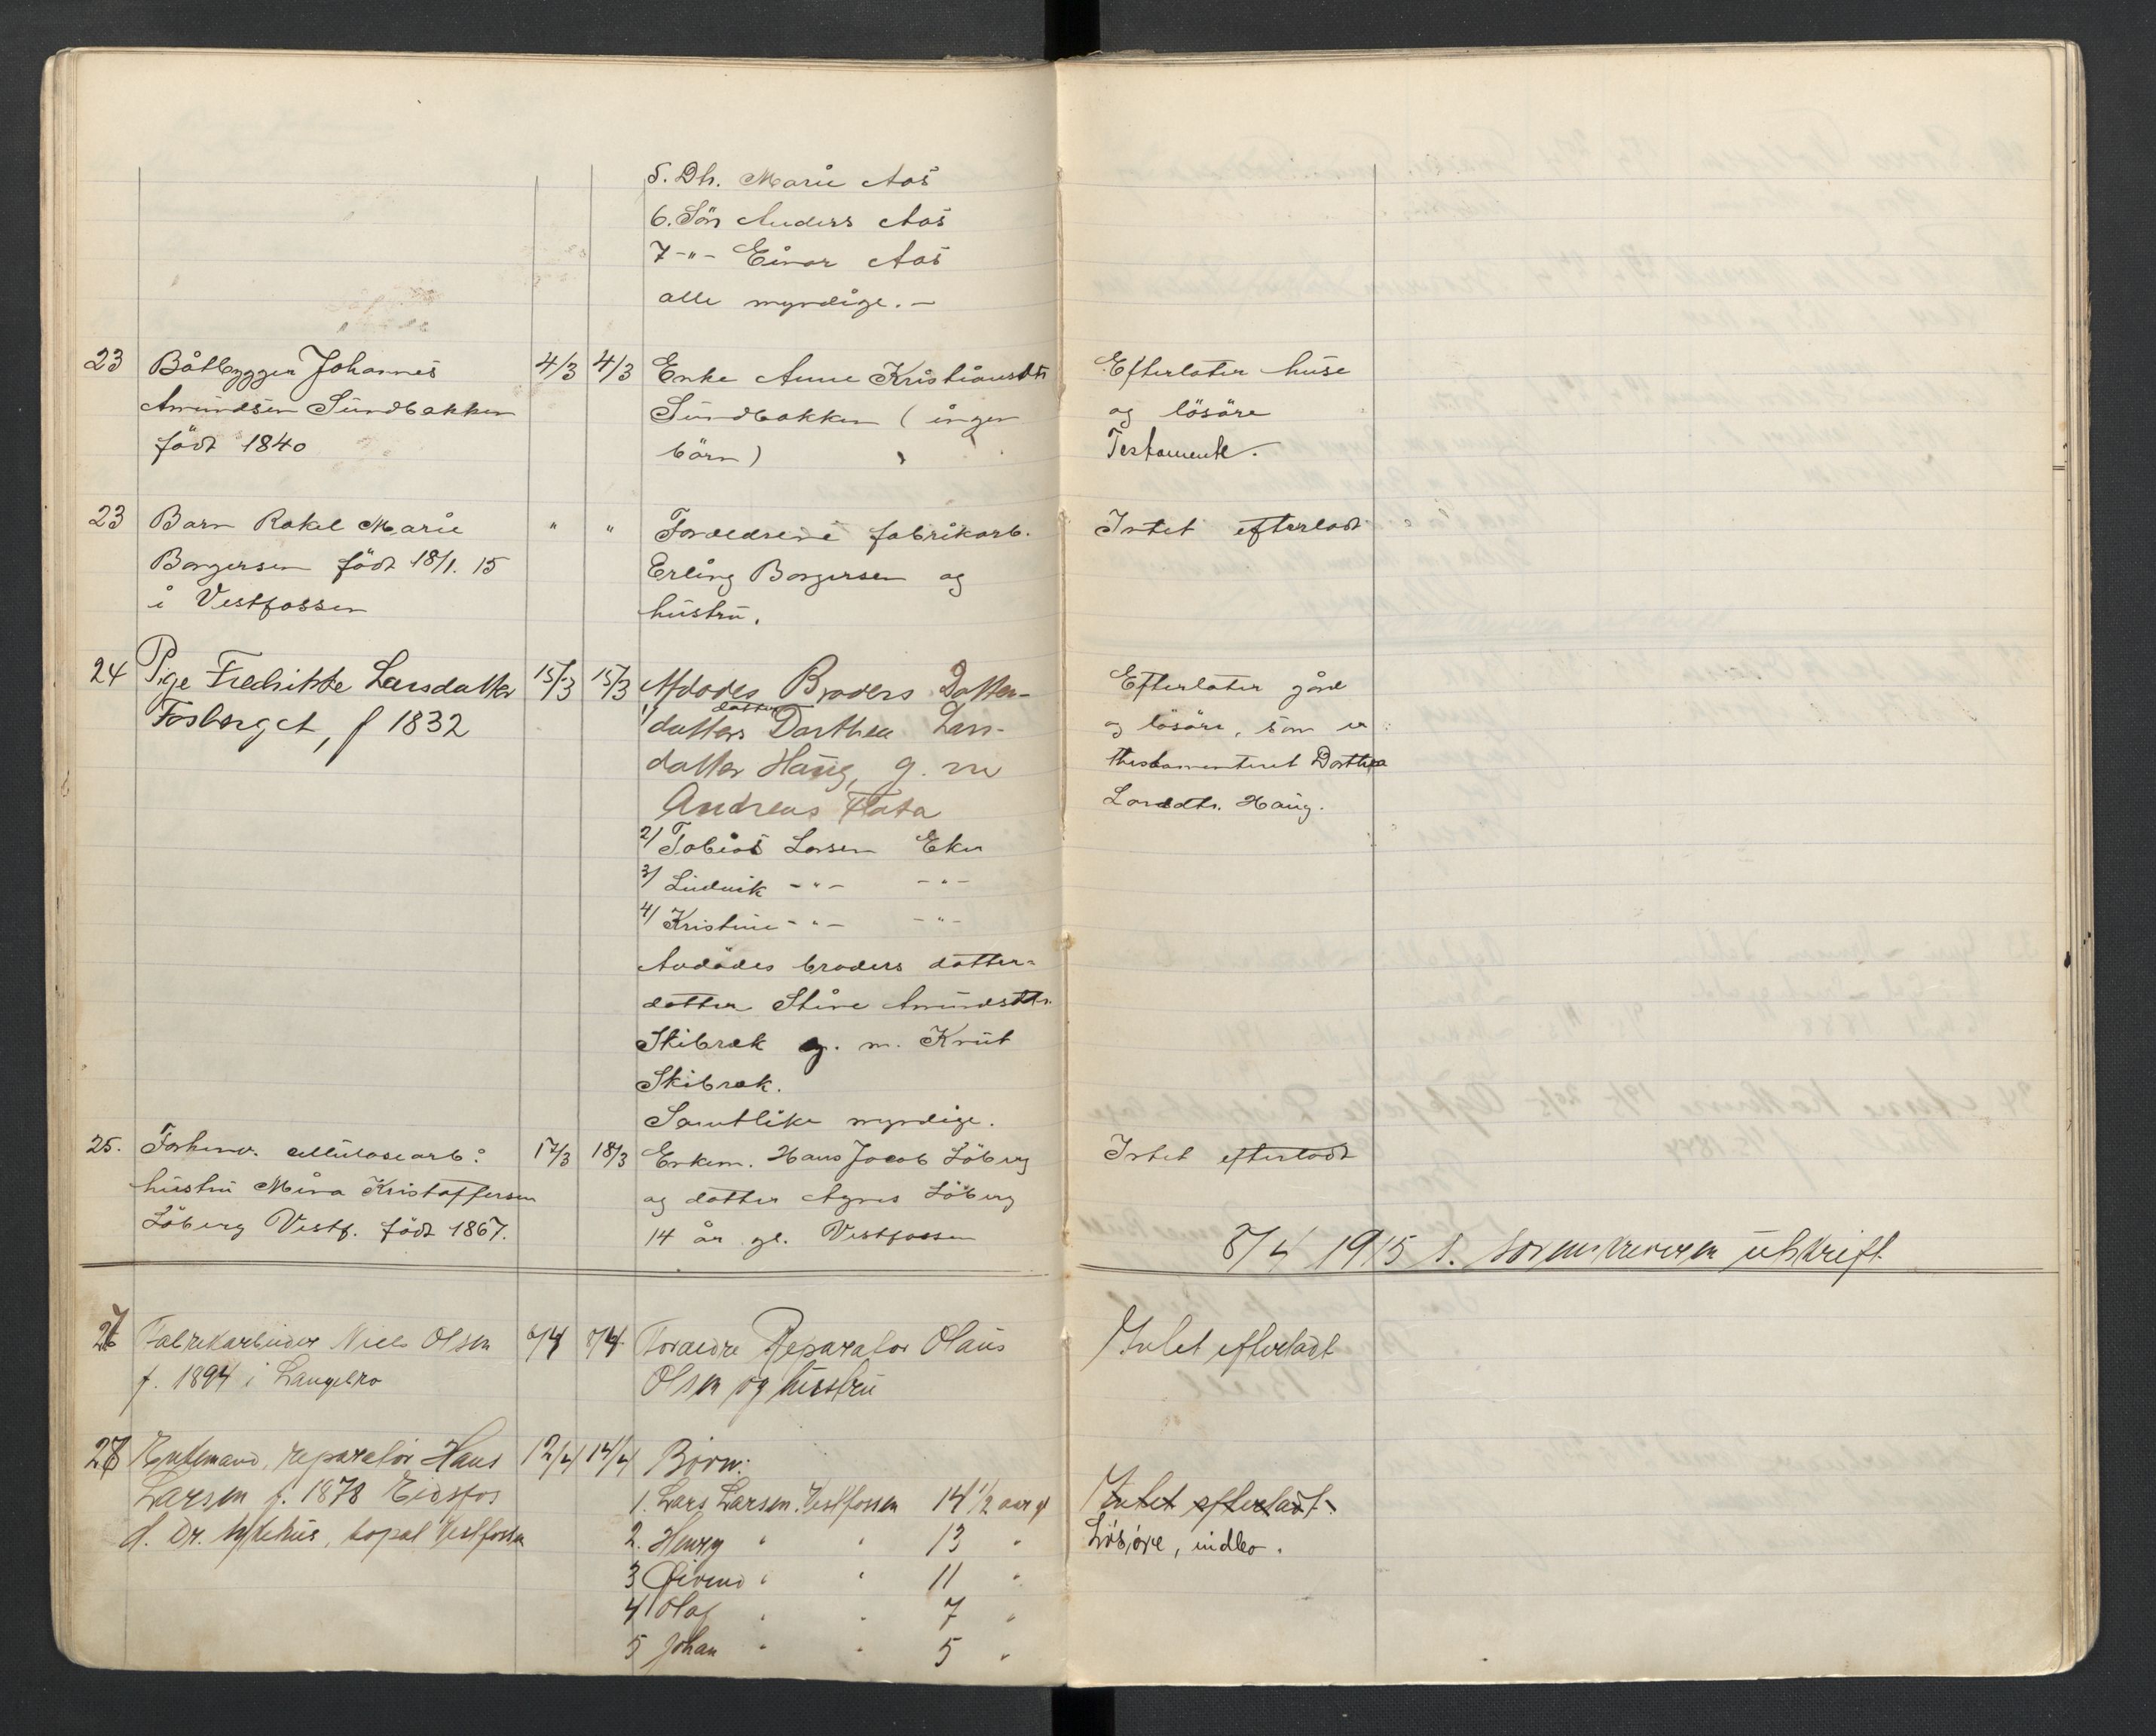 5. Dtr. Marie Aas
6. Sön Anders Aas
7 -"- Einar Aas
alle myndige. –
23 Båtbygger Johannes 4/3 4/3 Enke Anne Kristiansdtr Efterlater huse
Amundsen Sundbakken Sundbakken (ingen og lösöre
födt 1840 börn) Testamente.
23 Barn Rakel Marie " " Foreldrene fabrikarb. Intet efterladt
Borgersen födt 18/1. 15 Erling Borgersen og
i Vestfossen hustru.
24 Pige Fredrikke Larsdatter 15/3 15/3 Afdödes Broders Datter- Efterlater gård
Fosberget, f 1832 1/ datters datter Dorthea Lars- og lösöre, som er
datter Haug, g. m thestamenteret Dorthea
Andreas Flata Larsdtr. Haug.
2/ Tobias Larsen Eker
3/ Ludvik -"- -"-
4/ Kristine -"- -"-
Avdödes broders datter-
datter Stine Amundsdtr.
Skibrek g. m. Knut
Skibrek.
Samtlike myndige.
25. Forhenv. cellulosearb: 17/3 18/3 Enkem. Hans Jacob Löberg Intet efterladt
hustru Mina Kristoffersen og datter Agnes Löberg
Löberg Vestf. födt 1867. 14 år gl. Vestfossen
8/4 1915 s. sorenskriveren utskrift
26 Fabrikarbeider Niels Olsen 6/4 8/4 Foraedre Reparatør Olaus Intet efterladt
f. 1894 i Langebro Olsen og hustru
27 Enkemand, reparatör Hans 12/4 14/4 Börn:
Larsen f. 1878 Eidsfos 1. Lars Larsen. Vestfossen 14 1/2 aar g Intet efterladt.
d. Dr. sykehus, bopæl Vestfossen 2. Henry " " 13 " Lösöre, indbo.
3 Øivind " " 11 "
4 Olaf " " 7 "
5 Johan " " 5 "